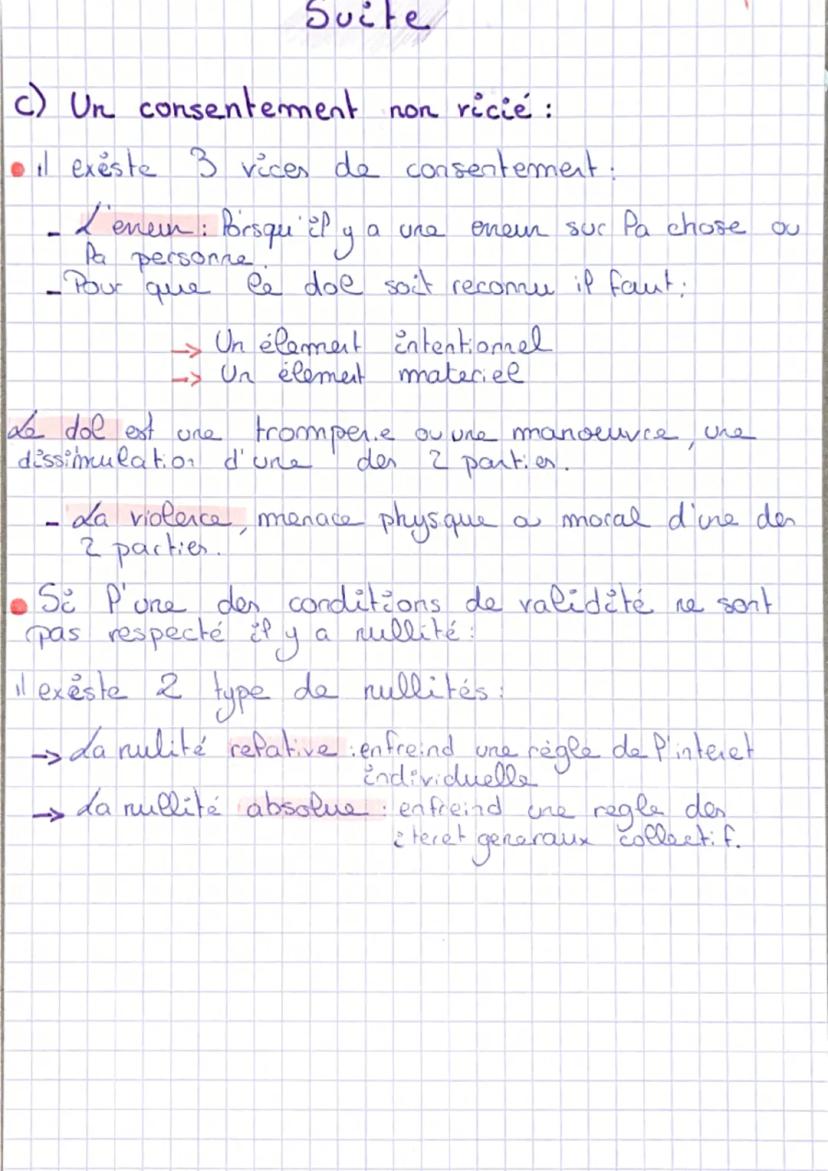 Suite
c) Un consentement non vicié :
il existe 3 vices de consentement :
- L'erreur : lorsqu'il y a une erreur sur la chose ou
la personne.
- Pour que le dol soit reconnu il faut :
→ Un élement intentionnel
→ Un élement materiel
Le dol est une tromperie ou une manoeuvre, une
dissimulation d'une des 2 parties.
- La violence, menace physque ou moral d'une des
2 parties.
Si l'une des conditions de validité ne sont
pas respecté il y a nullité :
il existe 2 type de nullités :
→ La nulité relative : enfreind une règle de l'interet
individuelle
→ La nullité absolue : enfreind une regle des
iteret generaux collectif.